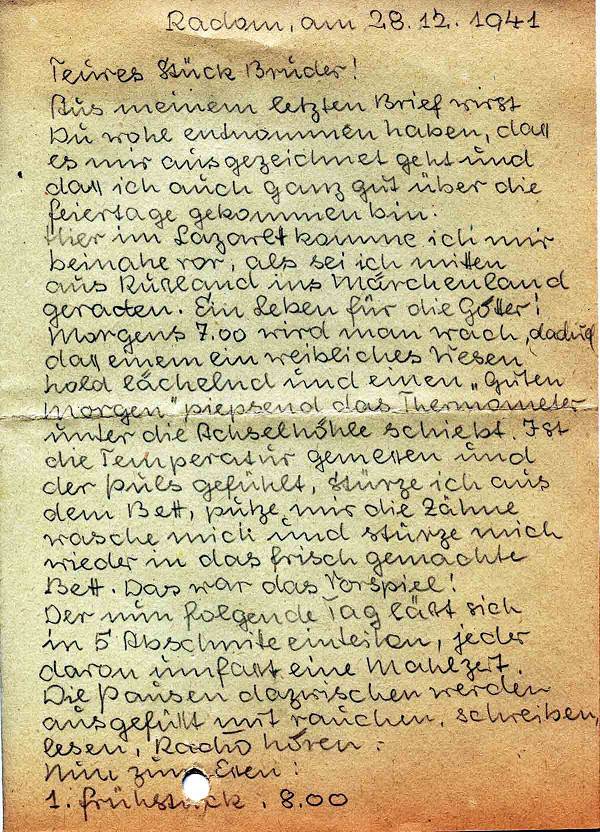 Radom, am 28.12.1941
Teures Stück Bruder!
Aus meinem letzten Brief wirst
Du wohl entnommen haben, daß
es mir ausgezeichnet geht und
daß ich auch ganz gut über die
Feiertage gekommen bin.
Hier im Lazarett komme ich mir
beinahe vor, als sei ich mitten
aus Rußland ins Märchenland
geraten. Ein Leben für die Götter!
Morgens 7.00 wird man wach, dadurch
daß einem ein weibliches Wesen
hold lächelnd und einen "Guten
Morgen" piepsend das Thermometer
unter die Achselhöhle schiebt. Ist
die Temperatur gemessen und
der Puls gefühlt, stürze ich aus
dem Bett, putze mir die Zähne
wasche mich und stürze mich
wieder in das frisch gemachte
Bett. Das war das Vorspiel!
Der nun folgende Tag läßt sich
in 5 Abschnitte einteilen, jeder
davon umfaßt eine Mahlzeit.
Die Pausen dazwischen werden
ausgefüllt mit rauchen, schreiben,
lesen, Radio hören.
Nun zum Essen:
1. Frühstück: 8.00